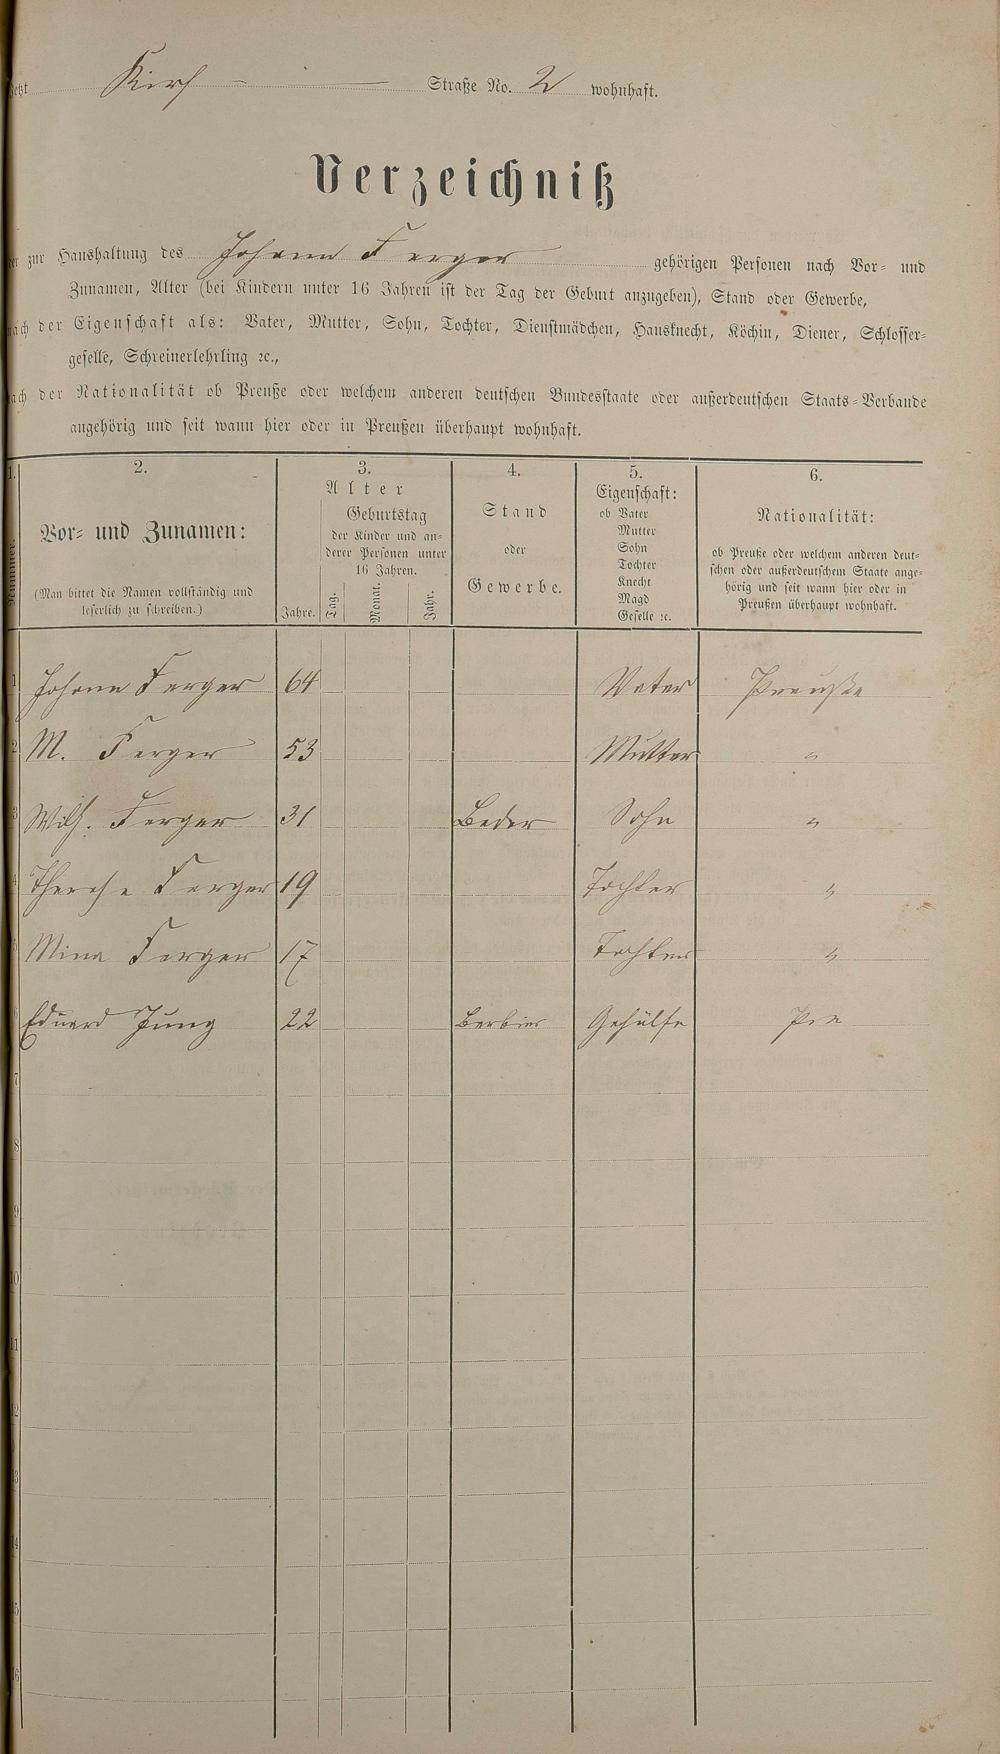 jetzt Kirch - - Straße No. 2 wohnhaft.
Verzeichniß
der zur Haushaltung des Johann Ferger gehörigen Personen nach Vor- und
Zunamen, Alter (bei Kindern unter 16 Jahren ist der Tag der Geburt anzugeben), Stand oder Gewerbe,
nach der Eigenschaft als: Vater, Mutter, Sohn, Tochter, Dienstmädchen, Hausknecht, Köchin, Diener, Schlosser-
geselle, Schreinerlehrling ꝛc.,
nach der Nationalität ob Preuße oder welchem anderen deutschen Bundesstaate oder außerdeutschen Staats-Verbande
angehörig und seit wann hier oder in Preußen überhaupt wohnhaft.
1. 2. 3. 4. 5. 6.
Nummer.
Vor- und Zunamen:
(Man bittet die Namen vollständig und
leserlich zu schreiben.)
Alter
Jahre.
Geburtstag
der Kinder und an-
derer Personen unter
16 Jahren.
Tag. Monat. Jahr.
Stand
oder
Gewerbe.
Eigenschaft:
ob Vater
Mutter
Sohn
Tochter
Knecht
Magd
Geselle ꝛc.
Nationalität:
ob Preuße oder welchem anderen deut-
schen oder außerdeutschem Staate ange-
hörig und seit wann hier oder in
Preußen überhaupt wohnhaft.
1 Johann Ferger 64 Vater Preuße
2 M. Ferger 53 Mutter "
3 Wilh. Ferger 31 Beder Sohn "
4 Therese Ferger 19 Tochter "
5 Mina Ferger 17 Tochter "
6 Eduard Jung 22 Berbier Gehülfe Pre
7
8
9
10
11
12
13
14
15
16